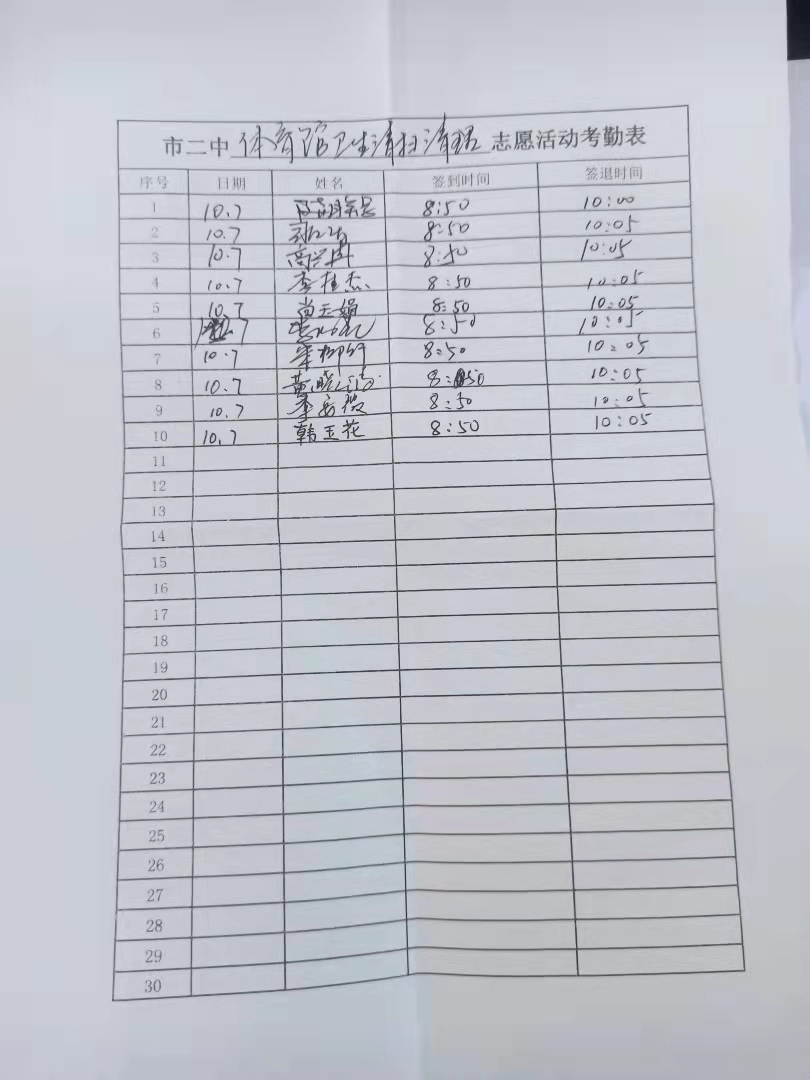 市二中 体育馆卫生清扫清理 志愿活动考勤表
序号 日期 姓名 签到时间 签退时间
1 10.7 8:50 10:00
2 10.7 8:50 10:05
3 10.7 8:50 10:05
4 10.7 李桂杰 8:50 10:05
5 10.7 尚玉娟 8:50 10:05
6 8:50 10:05
7 10.7 8:50 10:05
8 10.7 黄晓 8:50 10:05
9 10.7 李 8:50 10:05
10 10.7 韩玉花 8:50 10:05
11
12
13
14
15
16
17
18
19
20
21
22
23
24
25
26
27
28
29
30